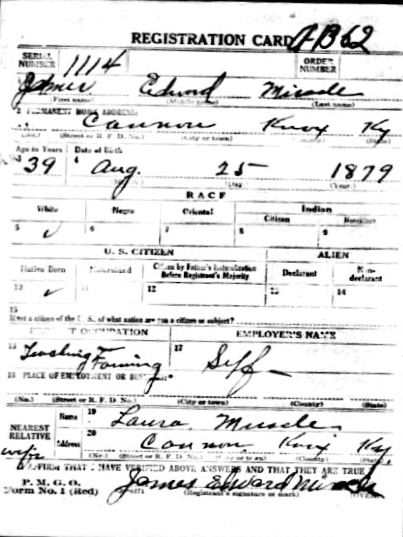 REGISTRATION CARD A B 62
SERIAL NUMBER 1114 ORDER NUMBER
James Edward Miracle
(First name) (Middle name) (Last name)
2 PERMANENT HOME ADDRESS:
Cannon Knox Ky
(No.) (Street or R. F. D. No.) (City or town) (County) (State)
Age in Years Date of Birth
39 Aug. 25 1879
(Day) (Year.)
RACE
White Negro Oriental Indian
Citizen Noncitizen
5 ✓ 6 7 8 9
U. S. CITIZEN ALIEN
Native Born Naturalized Citizen by Father's Naturalization Before Registrant's Majority Declarant Non-declarant
10 ✓ 11 12 13 14
15
If not a citizen of the U. S., of what nation are you a citizen or subject?
PRESENT OCCUPATION EMPLOYER'S NAME
16 Teaching Farming 17 Self
18 PLACE OF EMPLOYMENT OR BUSINESS:
(No.) (Street or R. F. D. No.) (City or town) (County) (State)
NEAREST RELATIVE Name 19 Laura Miracle
Address 20 Cannon Knox Ky.
wife (No.) (Street or R. F. D. No.) (City or town) (County) (State)
I AFFIRM THAT I HAVE VERIFIED ABOVE ANSWERS AND THAT THEY ARE TRUE
P. M. G. O.
Form No. 1 (Red) James Edward Miracle
(Registrant's signature or mark)